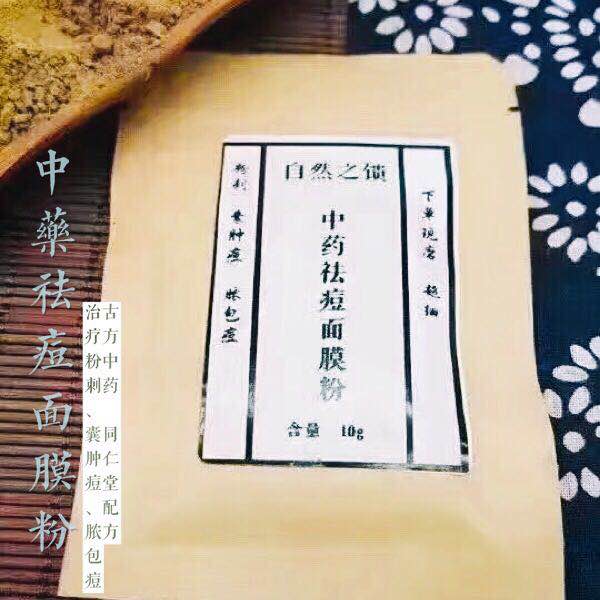 中藥祛痘面膜粉
古方中药 同仁堂配方
治疗粉刺、囊肿痘、脓包痘
自然之锁
中药祛痘面膜粉
含量 10g
下单现磨 超细
粉刺 囊肿痘 脓包痘